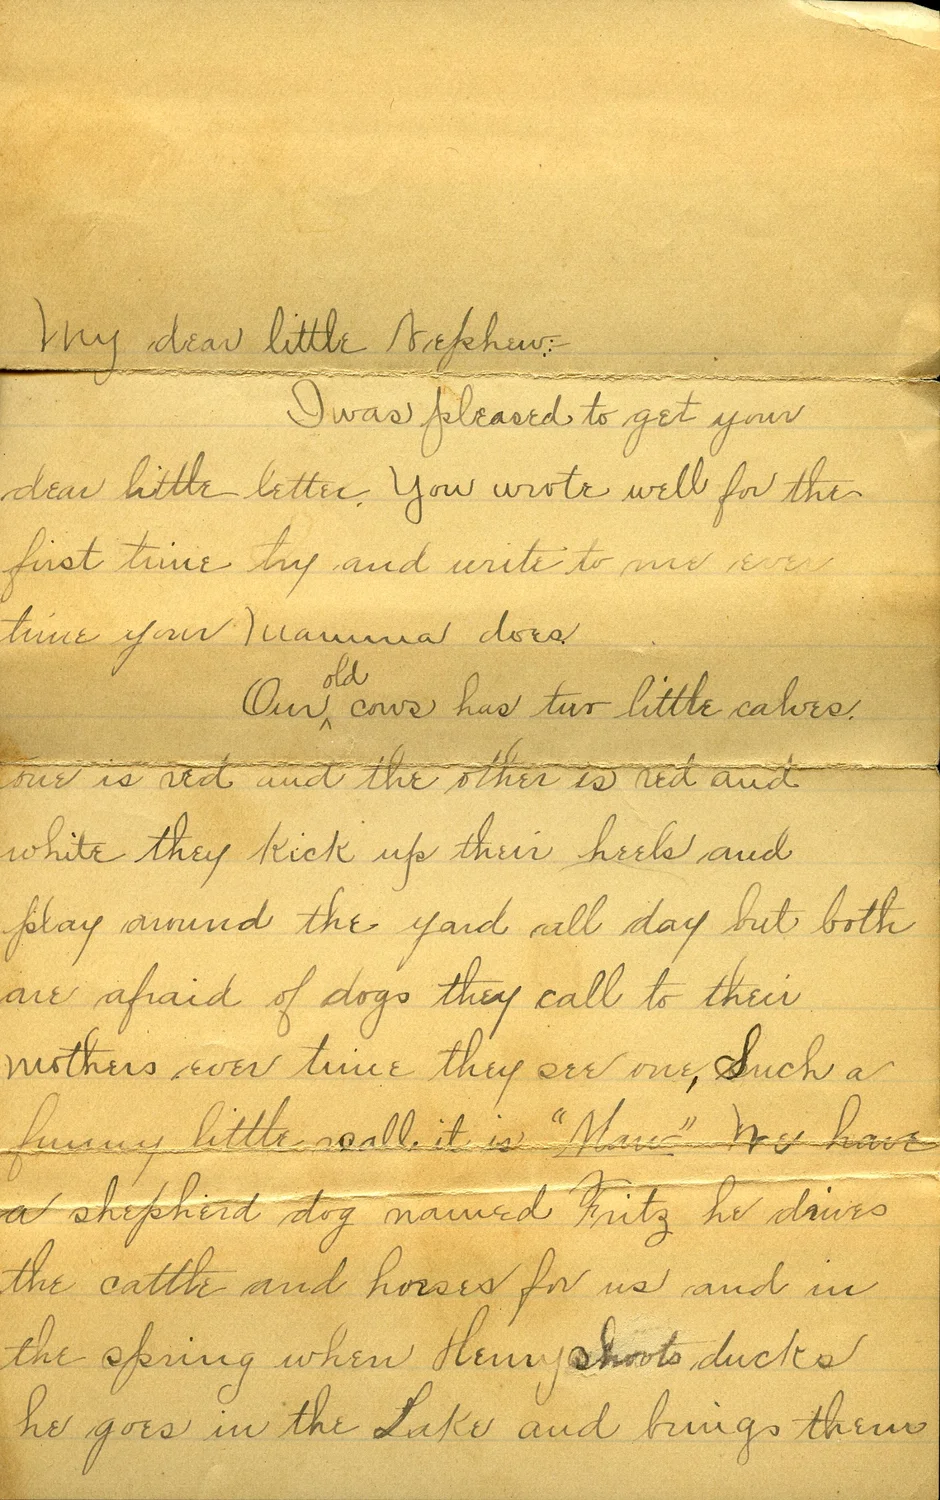 My dear little Nephew:-
I was pleased to get your
dear little letter. You wrote well for the
first time try and write to me ever
time your Mamma does.
old
Our ^ cows has two little calves.
one is red and the other is red and
white they kick up their heels and
play around the yard all day but both
are afraid of dogs they call to their
mothers ever time they see one, Such a
funny little call it is "Maw" We have
a shepherd dog named Fritz he drives
the cattle and horses for us and in
the spring when Henry shoots ducks
he goes in the Lake and brings them